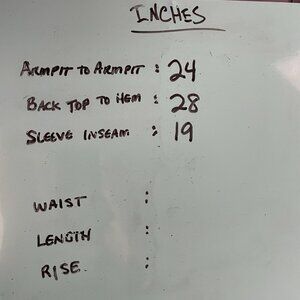 INCHES
ARMPIT TO ARMPIT : 24
BACK TOP TO HEM : 28
SLEEVE INSEAM : 19
WAIST :
LENGTH :
RISE :